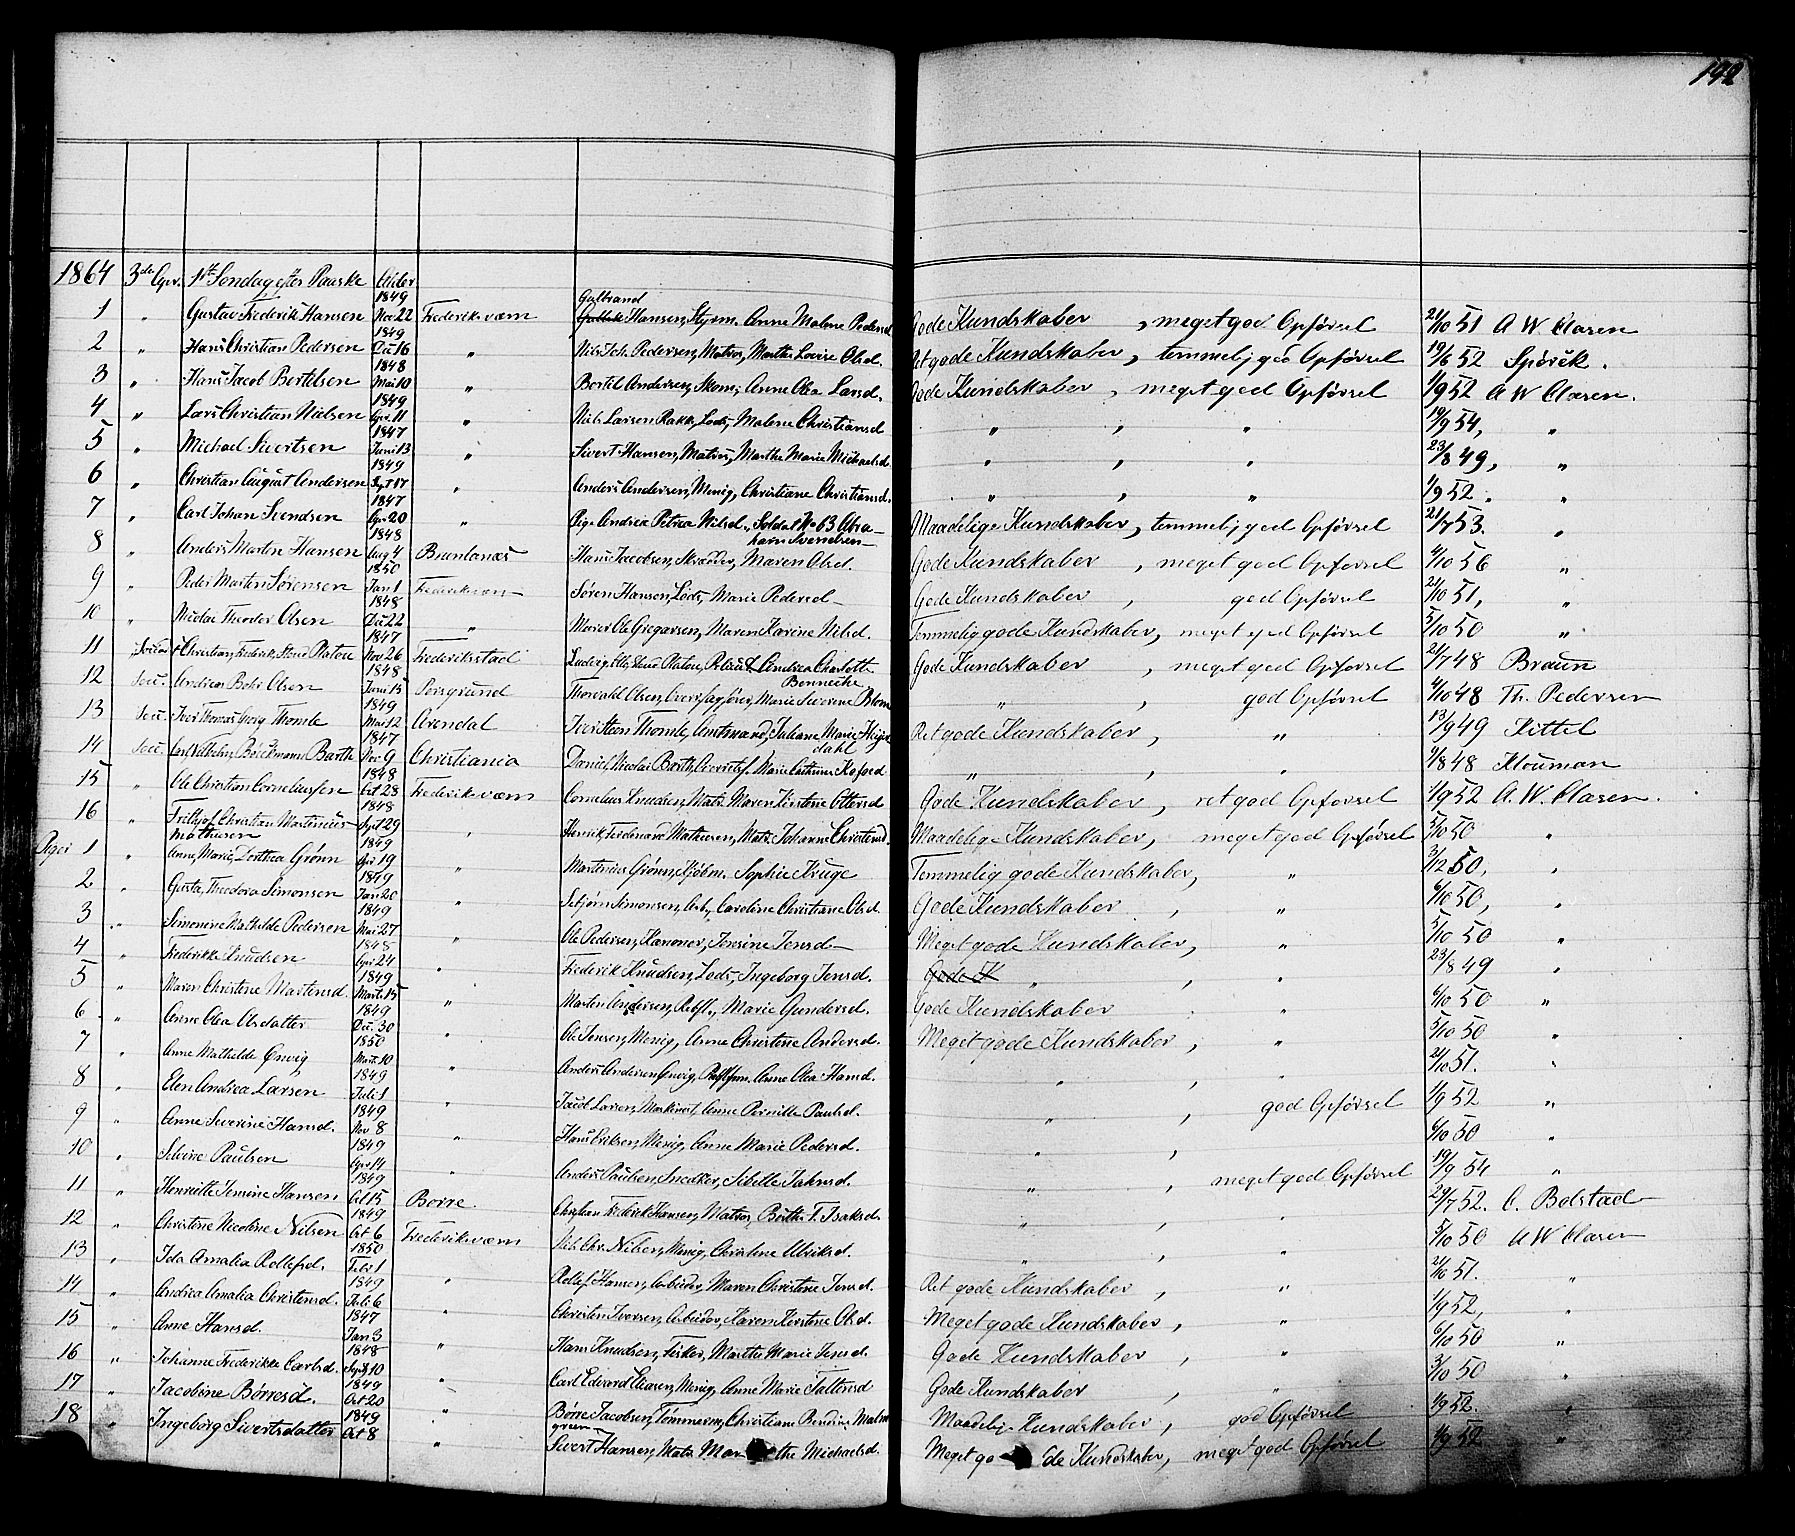 192
1864 3de Apr. 1ste Søndag efter Paaske Alder
1 " Gustav Frederik Hansen 1849 Nov 22 Frederiksværn Gulbrand Hansen, Styrm. Anne Malene Pedersd Gode Kundskaber, meget god Opførsel 21/10 51 A W Clasen
2 " Hans Christian Pedersen 1849 Dec 16 " Nils Joh. Pedersen, Matros, Marthe Lovise Olsd. Ret gode Kundskaber, temmelig god Opførsel 19/6 52 Spörck.
3 " Hans Jacob Bertelsen 1848 Mai 10 " Bertel Andersen, Skom, Anne Olea Larsd. Gode Kundskaber, meget god Opførsel 1/9 52 A W Clasen.
4 " Lars Christian Nielsen 1849 Apr 11 " Niels Larsen Rakke, Lods, Malene Christiansd " , " 19/9 54, "
5 " Michael Sivertsen 1847 Juni 13 " Sivert Hansen, Matros, Marthe Marie Michaelsd. " , " 23/8 49, "
6 " Christian August Andersen 1849 Spt 17 " Anders Andersen, Menig, Christiane Christiansd. " , " 1/9 52. "
7 " Carl Johan Svendsen 1847 Apr 20 " Pige Andrea Petrea Nilsd., Soldat No 63 Abra-
ham Svendsen Maadelige Kundskaber, temmelig god Opførsel 21/7 53. "
8 " Anders Martin Hansen 1848 Aug 4 Brunlanæs Hans Jacobsen, Skrædder, Maren Olsd. Gode Kundskaber, meget god Opførsel 4/10 56 "
9 " Peder Martin Sørensen 1850 Jan 1 Frederiksværn Søren Hansen, Lods, Marie Pedersd Gode Kundskaber, god Opførsel 21/10 51, "
10 " Nicolai Theodor Olsen 1848 Dec 22 " Murer Ole Gregarsen, Maren Karine Nilsd. Temmelig gode Kundskaber, meget god Opførsel 5/10 50 "
11 Christian, Frederik, Stoud Platou 1847 Nov 26 Frederiksstad Ludvig Stoud Platou, Andrea Charlott
Bennecke Gode Kundskaber, meget god Opførsel 21/7 48 Braun
12 Secc. Andreas Bohr Olsen 1848 Juni 15 Porsgrund Thorvald Olsen, Marie Severine Blom " , god Opførsel 4/10 48 Th. Pedersen
13 Secc. Iver Thomas Georg Thomle 1849 Mai 12 Arendal Iver Steen Thomle, Amtmand, Juliane Marie Heger-
dahl Ret gode Kundskaber, " 13/9 49 Kittel
14 Secc. Carl, Vilhelm, Børckmann Barth 1847 Nov 9 Christiania Daniel, Nicolai Barth, Marie Cathrine Kofoed " , " 4/8 48 Klouman
15 " Ole Christian Corneliussen 1848 Oct 28 Frederiksværn Cornelius Knudsen, Mats. Maren Kirstine Ottersd Gode Kundskaber, ret god Opførsel 1/9 52 A. W. Clasen.
16 " Frithjof Christian Martinius
Mathisen 1848 Spt 29 " Henrik, Ferdinand Mathisen, Mats. Johanne Christensd. Maadelige Kundskaber, meget god Opførsel 5/10 50 "
Piger 1 " Anne, Marie, Dorthea Grønn 1849 Apr 19 " Martinius Grønn, Kjøbm. Sophie Kruge Temmelig gode Kundskaber, " 3/12 50, "
2 " Gusta, Theodora Simonsen 1849 Jan 20 " Sebjørn Simonsen, Arb., Caroline Christiane Olsd Gode Kundskaber, " 6/10 50, "
3 " Simonine Mathilde Pedersen 1849 Mai 27 " Ole Pedersen, Kanoner, Jensine Jensd Meget gode Kundskaber, " 5/10 50 "
4 " Frederikke Knudsen 1848 Apr 24 " Frederik Knudsen, Lods, Ingeborg Jensd. Gode K " , " 23/8 49 "
5 " Maren Christine Martinsd. 1849 Marts 15 " Martin Andersen, Rebsl., Marie Gundersd. Gode Kundskaber, " 6/10 50 "
6 " Anne Olea Olsdatter 1849 Dec. 30 " Ole Jensen, Menig, Anne Christine Andersd. Meget gode Kundskaber, " 5/10 50 "
7 " Anne Mathilde Ønvig 1850 Marts 10 " Anders Andersen Ønvig, Anne Olea Hansd. " , " 21/10 51. "
8 " Elen Andrea Larsen 1849 Juli 1 " Jacob Larsen, Maskinist, Anne Pernille Paulsd. " , god Opførsel 1/9 52 "
9 " Anne Severine Hansd. 1849 Nov 8 " Hans Eriksen, Menig, Anne Marie Pedersd. " , 6/10 50 "
10 " Silvine Paulsen 1849 Apr 14 " Anders Paulsen, Snedker, Sibille Jahnsd. " , meget god Opførsel 19/9 54 "
11 " Henriette Jensine Hansen 1849 Oct 15 Borre Christian Frederik Hansen, Matros, Berthe T. Isaksd. " , " 29/7 52. C. Bolstad
12 " Christine Nicoline Nilsen 1849 Oct 6 Frederiksværn Nils Chr. Nilsen, Menig, Christine Ulriksd. " , 5/10 50 A W Clasen
13 " Ida Amalia Rollefsd. 1850 Febr 1 " Rollef Hansen, Arbeider, Maren Christine Jensd. Ret gode Kundskaber, " 21/10 51. "
14 " Andrea Amalia Christensd. 1849 Juli 6 " Christen Iversen, Arbeider, Karen Kirstine Olsd. Meget gode Kundskaber, " 1/9 52, "
15 " Anne Hansd. 1847 Jan 3 " Hans Knudsen, Fisker, Marthe Marie Jensd. Gode Kundskaber, " 6/10 50 "
16 " Johanne Frederikke Carlsd. 1848 Septb 10 " Carl Edvard Eliasen, Menig, Anne Marie Tallensd Gode Kundskaber, " 3/10 50 "
17 " Jacobine Børresd. 1849 Oct 20 " Børre Jacobsen, Tømmerm, Christiane Bendine Malm-
green Maadelige Kundskaber, god Opførsel 1/9 52. "
18 " Ingeborg Sivertsdatter 1849 Oct 8 " Sivert Hansen, Mats. Marthe Michaelsd. Meget gode Kundskaber, meget god Opførsel 1/9 52 "